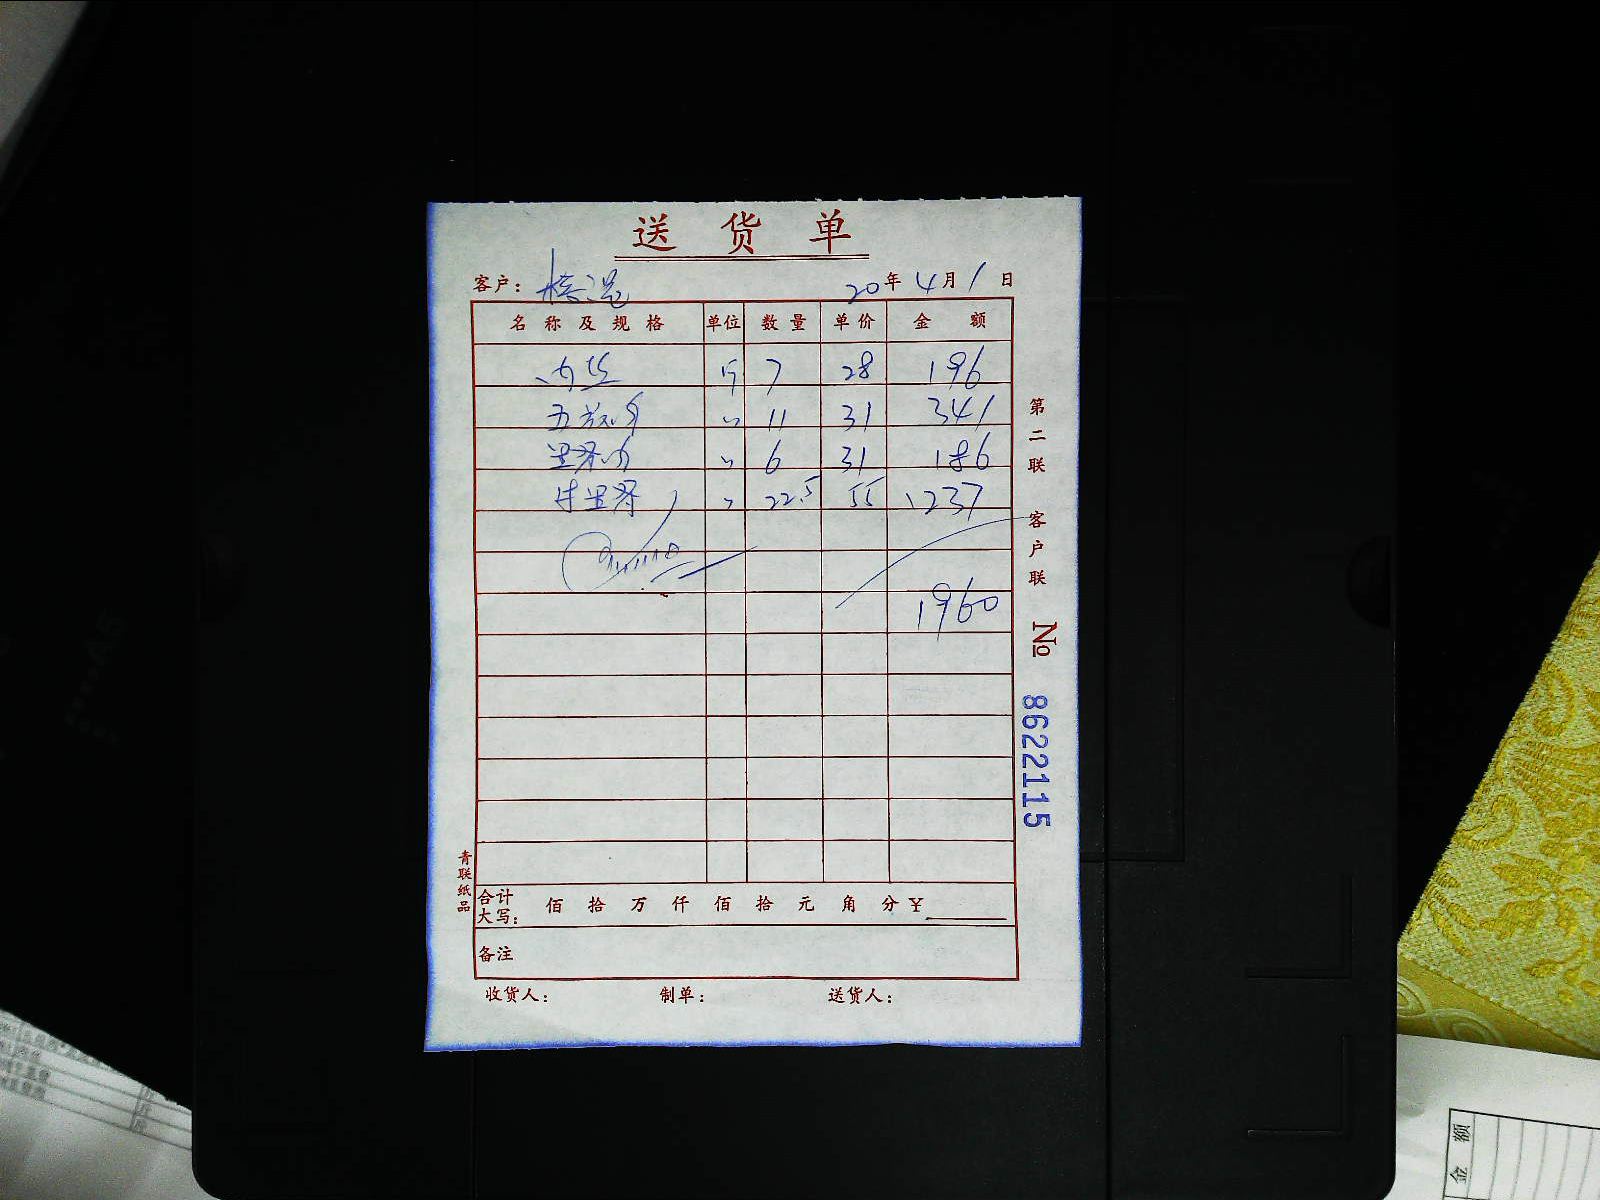 送货单
客户： 20年4月1日
名称及规格 单位 数量 单价 金额
肉丝 斤 7 28 196
五花肉 〃 11 31 341
里脊肉 〃 6 31 186
牛里脊 〃 22.5 55 1237
1960
第二联 客户联
№ 8622115
青联纸品
合计大写： 佰 拾 万 仟 佰 拾 元 角 分 ¥
备注
收货人： 制单： 送货人：
金额